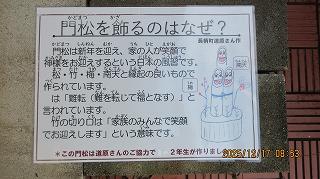 門松を飾るのはなぜ？
かどまつ かざ
長柄町道原さん作
門松は新年を迎え、家の人が笑顔で
神様をお迎えするという日本の風習です。
松・竹・梅・南天と縁起の良いもので
作られています。
は「難転（難を転じて福となす）」と
言われています。
竹の切り口は「家族のみんなで笑顔
でお迎えします」という意味です。
＊この門松は道原さんのご協力で 2年生が作りまし
2025/12/17 08:53